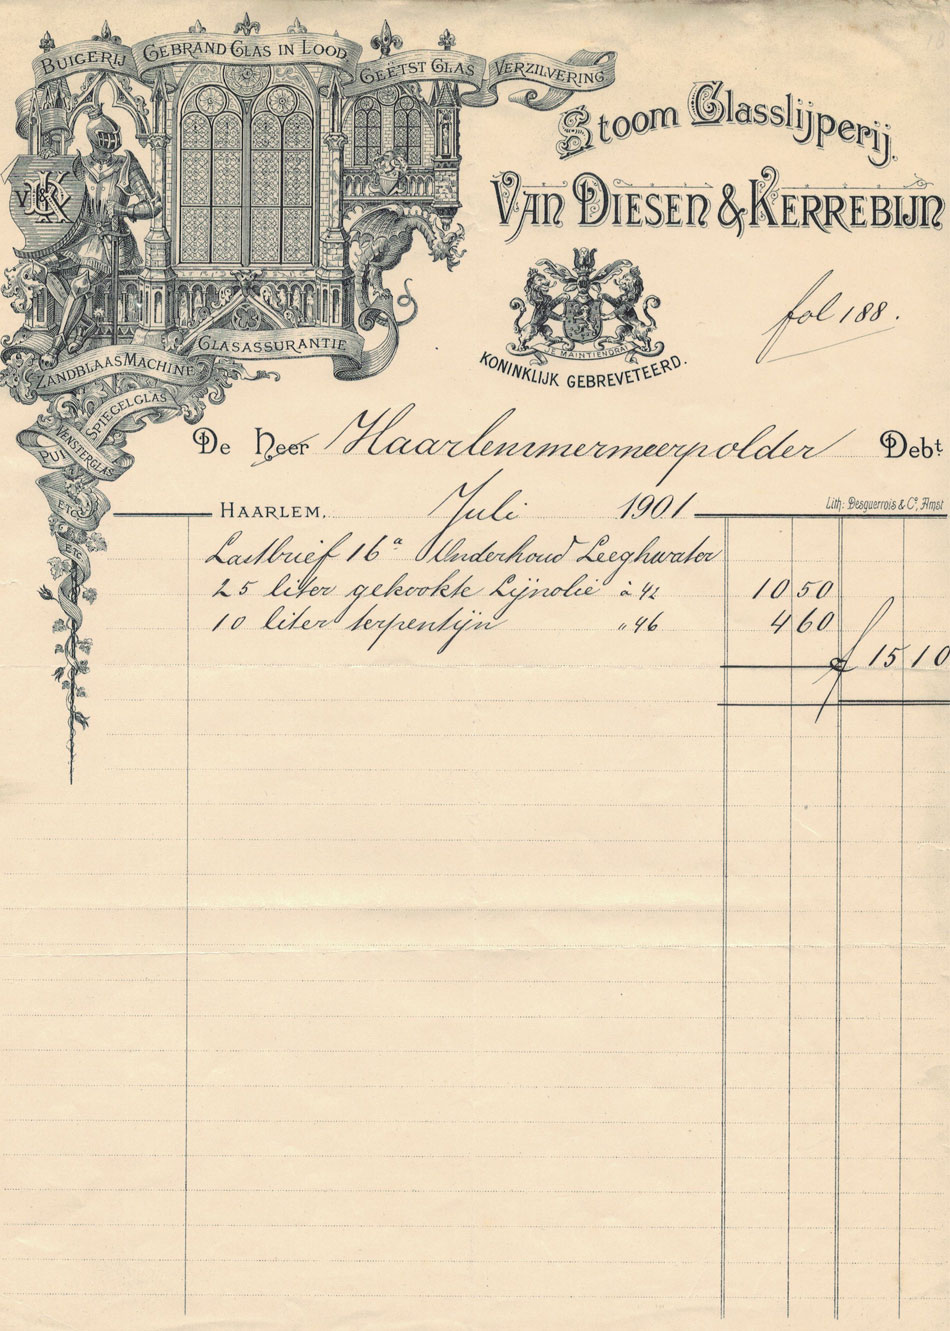 BUIGERIJ GEBRAND GLAS IN LOOD. GEËTST GLAS VERZILVERING
Stoom Glasslijperij.
VAN DIESEN & KERREBIJN
VDK
JE MAINTIENDRAI
KONINKLIJK GEBREVETEERD.
fol 188.
GLASASSURANTIE
ZANDBLAASMACHINE
SPIEGELGLAS
VENSTERGLAS
PUI
ETC
ETC
De Heer Haarlemmermeerpolder Debt.
Lith: Desguerrois & Co, Amst
HAARLEM, Juli 1901
Lastbrief 16a Onderhoud Leeghwater
25 liter gekookte Lijnolie à 42 10 50
10 liter terpentijn " 46 4 60
f 15 10